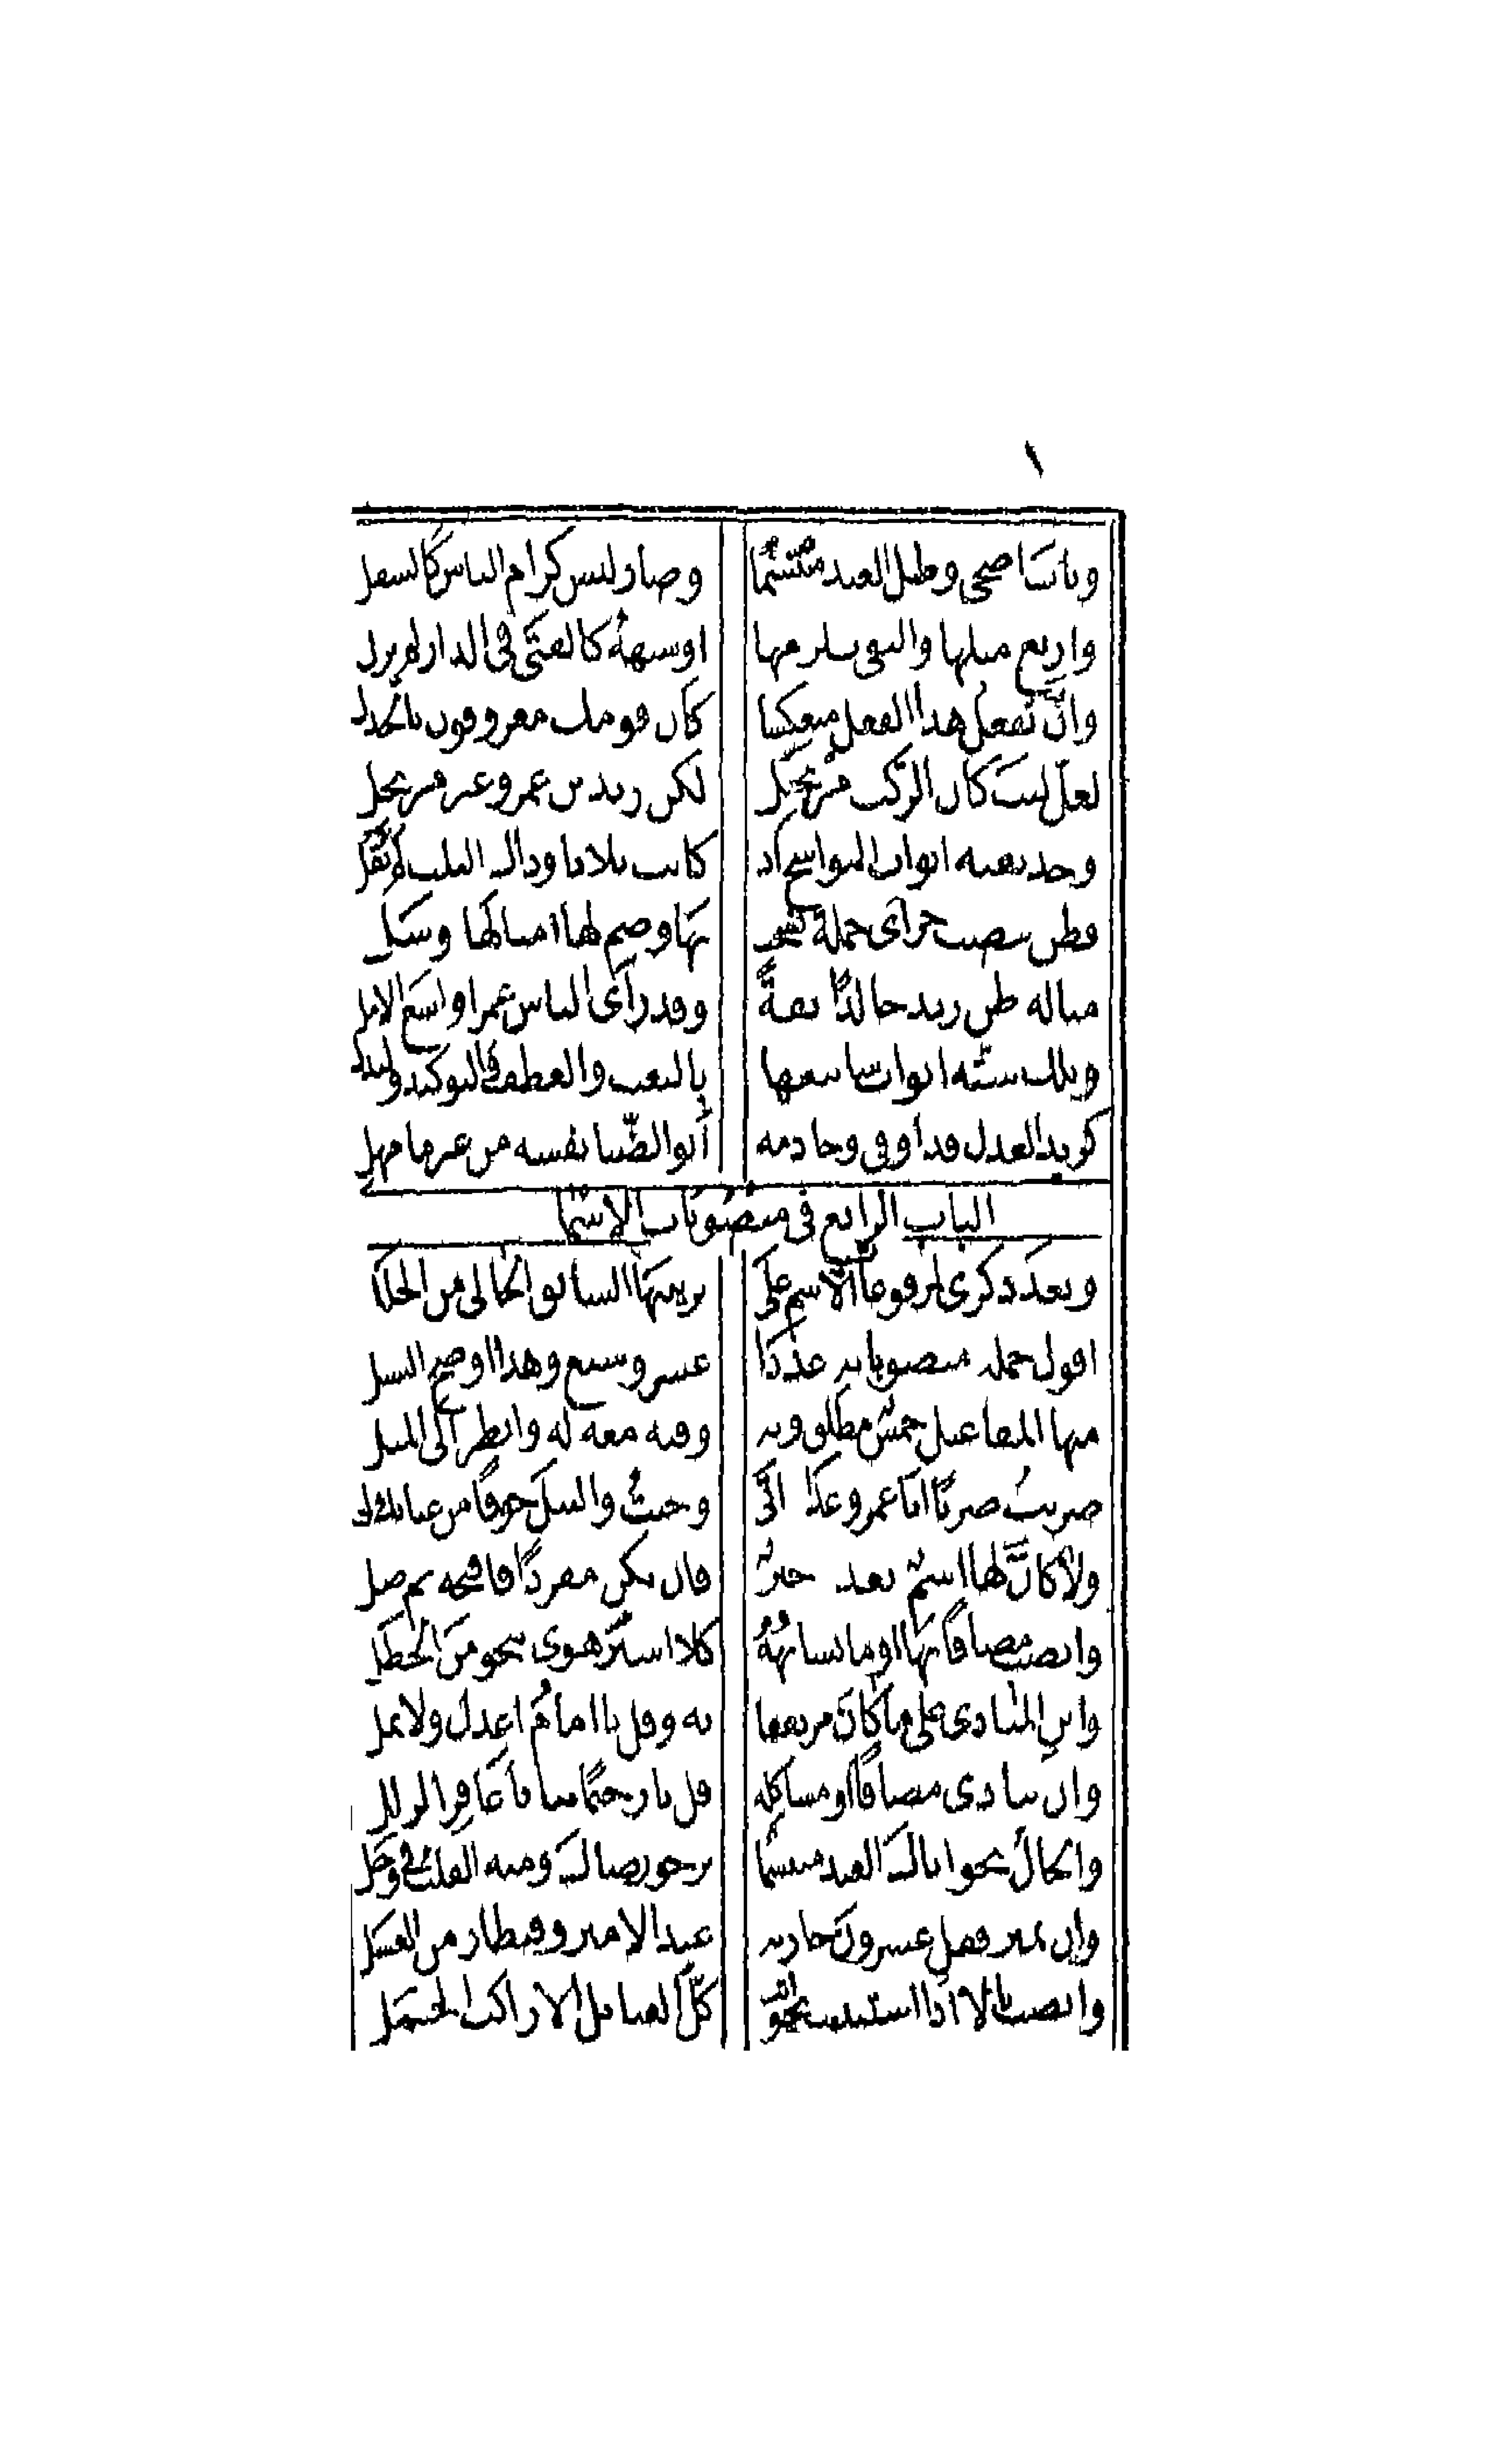 ١
وبات اضحى وظل العبد مبتسما وصار ليس كرام الناس كالسفل
واربع مثلها والنفي يلزمها او شبهه كالفتى في الدار لم يزل
وانّ تفعل هذا الفعل منعكسا كأن قومك معروفون بالجدل
لعلّ ليت كأن الركب مرتحل لكن زيد بن عمرو غير مرتحل
وخذ بقيه ابواب النواسخ اذ كانت ثلاثا وذاك الثلث لم يقل
فظن تنصب جزأى جملة نسخت بها وضم لها امثالها وسل
مثاله ظن زيد خالدًا ثقةً وقد رأى الناس عمرا واسع الامل
وتلك ستّه ابواب ساتبعها بالنعت والعطف والتوكيد والبدل
كزيد العدل قد اوفى وخادمه أبو الضّيا نفسه من غير ما مهل
الباب الرابع فى منصوبات الاسما
وبعد ذكرى لمرفوعات الاسم على ترتيبها السابق الخالى من الخلل
اقول جمله منصوباته عددًا عشر وسبع وهذا اوضح السبل
منها المفاعيل خمسٌ مطلق وبه وفيه معه له وانظر الى المثل
ضربتُ ضربًا ابا عمرو غداة اتى وجئتُ والنيل خوفًا من عتابك لى
ولا كانَّ لها اسمٌ بعده خبرٌ فان يكن مفردًا فافتحه ثم صل
وانصب مضافًا بها او ما يشابههُ كلا اسير هوى ينجو من الخطل
وابنِ المنادى على ما كان مرتفعا به وقل يا امامُ اعدل ولا تمل
وان تنادى مضافًا او مشاكله قل يا رحيمًا بنا يا غافر الزلل
والحال نحو اتاك العبد مبتسما يرجو رضاك ومنه القلب فى وجل
وان تميز فقل عشرون جاريه عند الامير وقنطار من العسل
وانصب بالا اذا استثنيت نحو اتت كلّ القبائل الا راكب الجمل